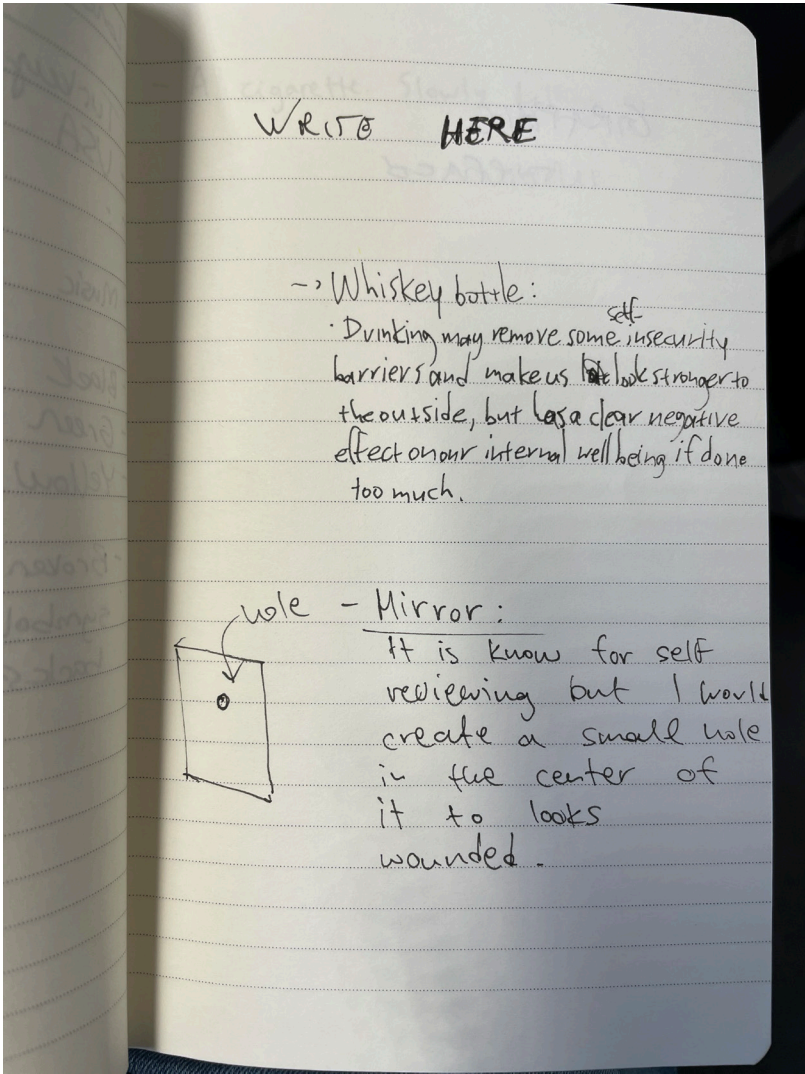 WRITE HERE
-> Whiskey bottle:
self-
· Drinking may remove some insecurity
barriers and make us look stronger to
the outside, but has a clear negative
effect on our internal wellbeing if done
too much.
hole - Mirror:
It is know for self
reviewing but I would
create a small hole
in the center of
it to looks
wounded.